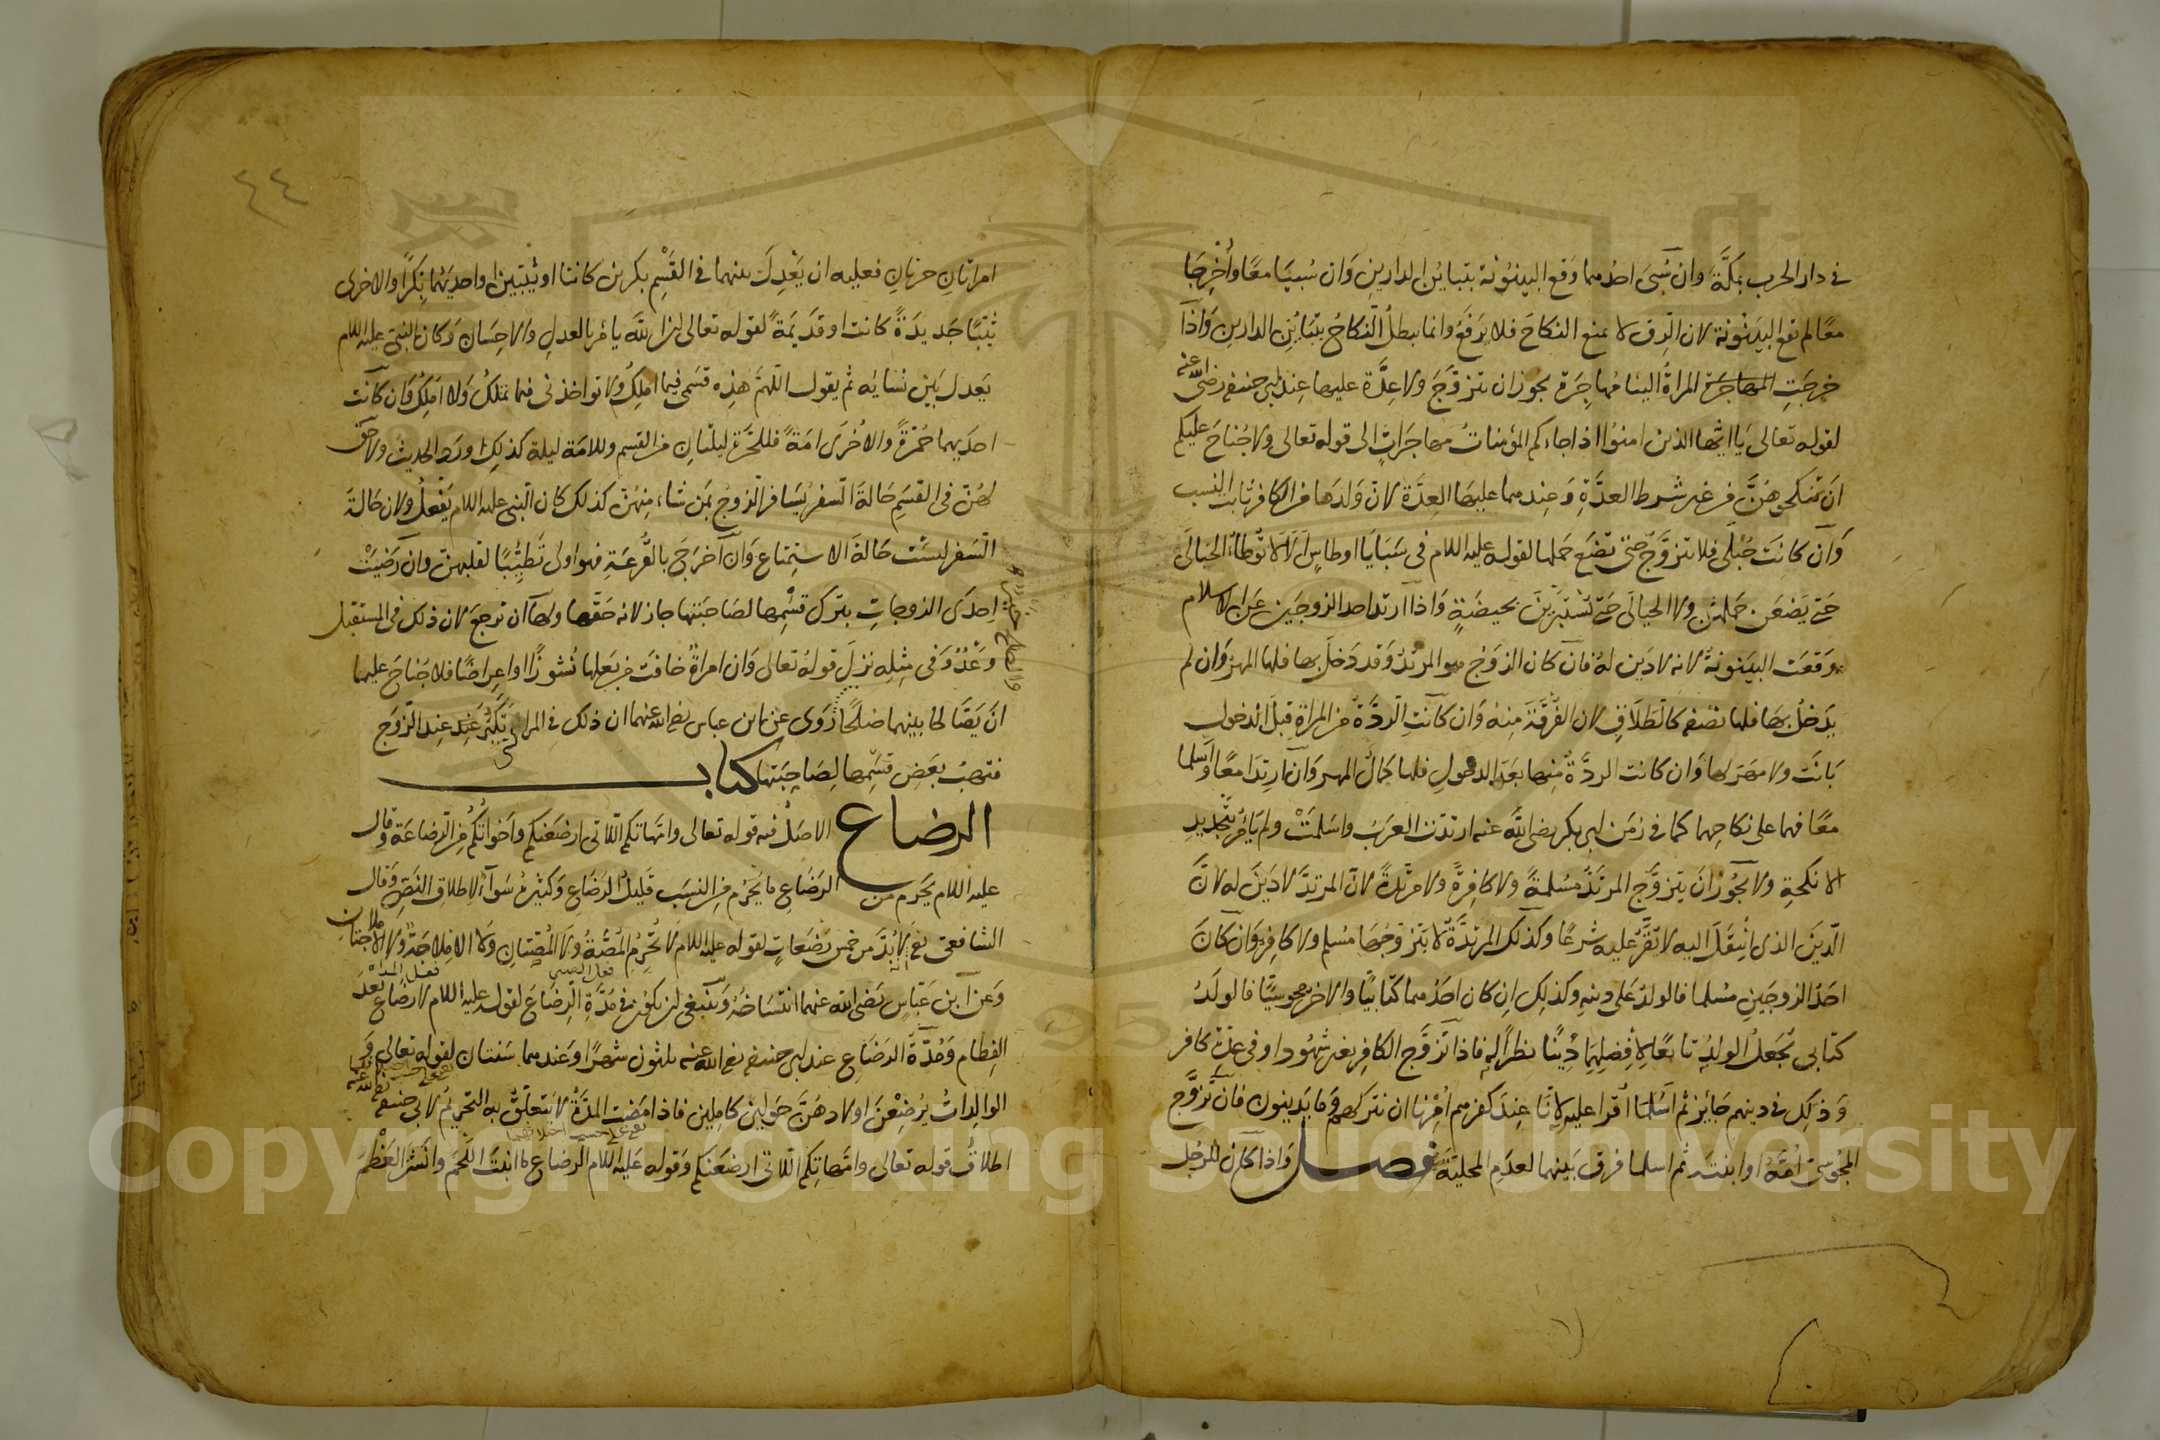 في دار الحرب بمكة وان سبى احدهما وقع البينونة بتباين الدارين وان سبيا معا واخرجا
معا لم تقع البينونة لان الرق لا يمنع النكاح فلا يرفعه وانما يبطل النكاح بتباين الدارين واذا
خرجت المراة الينا مهاجرة يجوز ان تتزوج ولا عدة عليها عند ابي حنيفة رضي الله عنه
لقوله تعالى يا ايها الذين امنوا اذا جاءكم المؤمنات مهاجرات الى قوله تعالى ولا جناح عليكم
ان تنكحوهن من غير شرط العدة وعندهما عليها العدة لان ولدها من الكافر ثابت النسب
وان كانت حبلى فلا تتزوج حتى تضع حملها لقوله عليه السلام في سبايا اوطاس الا لا توطا الحبالى
حتى يضعن حملهن ولا الحيالى حتى تستبرين بحيضة واذا ارتد احد الزوجين عن الاسلام
وقعت البينونة لانه لا دين له فان كان الزوج هو المرتد وقد دخل بها فلها المهر وان لم
يدخل بها فلها نصفه كالطلاق لان الفرقة منه وان كانت الردة من المراة قبل الدخول
بانت ولا مهر لها وان كانت الردة منها بعد الدخول فلها كمال المهر وان ارتدا معا واسلما
معا فهما على نكاحهما كما في زمن ابي بكر رضي الله عنه ارتدت العرب واسلمت ولم يامر بتجديد
الانكحة ولا يجوز ان يتزوج المرتد مسلمة ولا كافرة ولا مرتدة لان المرتد لا دين له لان
الدين الذي انتقل اليه لا تقر عليه شرعا وكذلك المرتدة لا يتزوجها مسلم ولا كافر وان كان
احد الزوجين مسلما فالولد على دينه وكذلك ان كان احدهما كتابيا والاخر مجوسيا فالولد
كتابي تجعل الولد تابعا لافضلهما دينا نظرا له فاذا تزوج الكافر بغير شهود او في عدة كافر
وذلك في دينهم جايز ثم اسلما اقرا عليه لانا عند كفرهم امرنا ان نتركهم وما يدينون فان تزوج
المجوسي امه او ابنته ثم اسلما فرق بينهما لعدم المحلية فصل واذا كان للرجل
٤٤
امراتان حرتان فعليه ان يعدل بينهما في القسم بكرين كانتا او ثيبتين او احديهما بكرا والاخرى
ثيبا جديدة كانت او قديمة لقوله تعالى ان الله يامر بالعدل والاحسان وكان النبي عليه السلام
يعدل بين نسايه ثم يقول اللهم هذه قسمي فيما املك ولا تواخذني فيما تملك ولا املك وان كانت
احديهما حرة والاخرى امة فللحرة ليلتان من القسم وللامة ليلة كذلك ورد الحديث ولا حق
لهن في القسم حالة السفر يسافر الزوج بمن شاء منهن كذلك كان النبي عليه السلام يفعل ولان حالة
السفر ليست حالة الاستمتاع وان اخرج بالقرعة فهو اولى تطييبا لقلبهن وان رضيت
احدى الزوجات بترك قسمها لصاحبتها جاز لانه حقها ولها ان ترجع لان ذلك في المستقبل
وعد وفي مثله نزل قوله تعالى وان امراة خافت من بعلها نشوزا او اعراضا فلا جناح عليهما
ان يصالحا بينهما صلحا روى عن ابن عباس رضي الله عنهما ان ذلك في المراة عند الزوج
فتهب بعض قسمها لصاحبتها كتاب
والصلح خير
الرضاع الاصل فيه قوله تعالى وامهاتكم اللاتي ارضعنكم واخواتكم من الرضاعة وقال
عليه السلام يحرم من الرضاع ما يحرم من النسب قليل الرضاع وكثيره سواء لاطلاق النص وقال
الشافعي لا بد من خمس رضعات لقوله عليه السلام لا تحرم المصة ولا المصتان ولا الاملاجة ولا الاملاجتان
فعل الصبي
وعن ابن عباس رضي الله عنهما انتساخه وينبغي ان يكون في مدة الرضاع لقوله عليه السلام لا رضاع بعد
الفطام ومدة الرضاع عند ابي حنيفة رضي الله عنه ثلثون شهرا وعندهما سنتان لقوله تعالى
الوالدات يرضعن اولادهن حولين كاملين فاذا مضت المدة لا يتعلق به التحريم لابي حنيفة رضي الله عنه
اطلاق قوله تعالى وامهاتكم اللاتي ارضعنكم وقوله عليه السلام الرضاع ما انبت اللحم وانشز العظم
Copyright © King Saud University